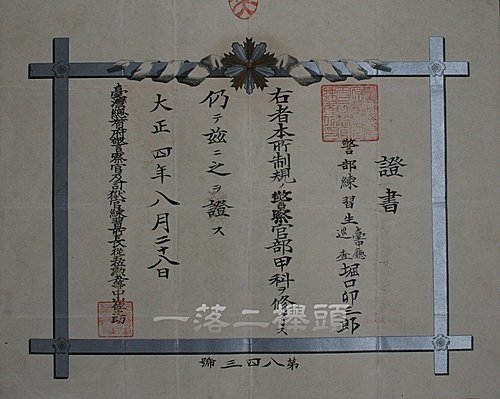 證書
警部練習生
巡查
堀口卯三郎
右者本所制規ノ警察官部甲科ヲ修了ス
仍テ玆ニ之ヲ證ス
大正四年八月二十八日
臺灣總督府警察官及司獄官練習所長從五位勳五等中山佐之助
第八四三號
一落二櫸頭